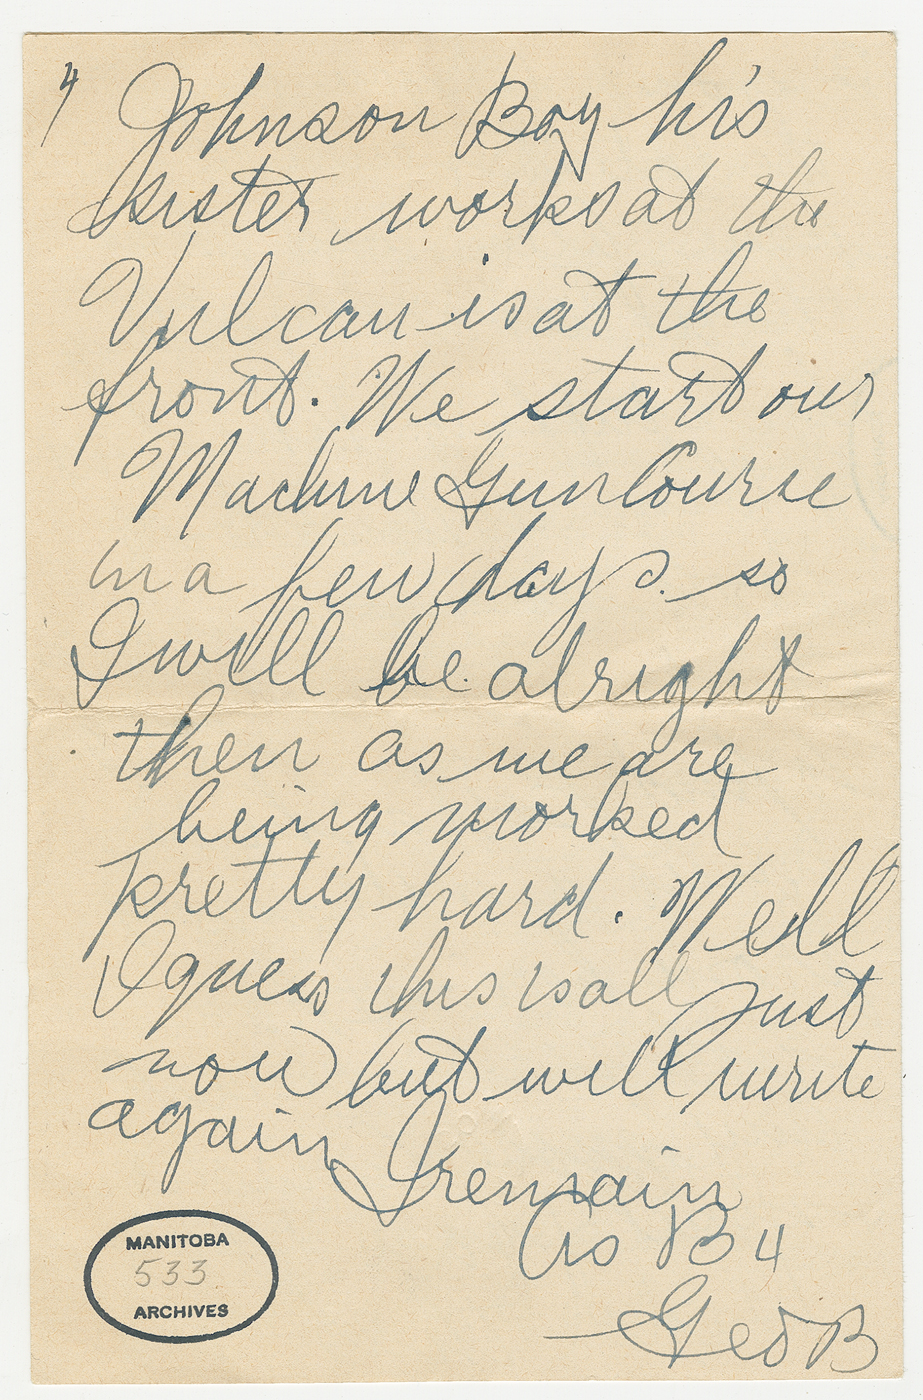 4
Johnson Boy his
sister works at the
Vulcan is at the
front. We start our
Machine Gun Course
in a few days. so
I will be alright
then as we are
being worked
pretty hard. Well
I guess this is all just
now but will write
again I remain
As B 4
Geo B
MANITOBA
533
ARCHIVES